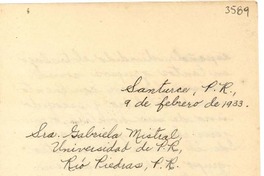 3589
Santurce, P.R.,
9 de febrero de 1933.
Sra. Gabriela Mistral,
Universidad de P.R.,
Río Piedras, P.R.